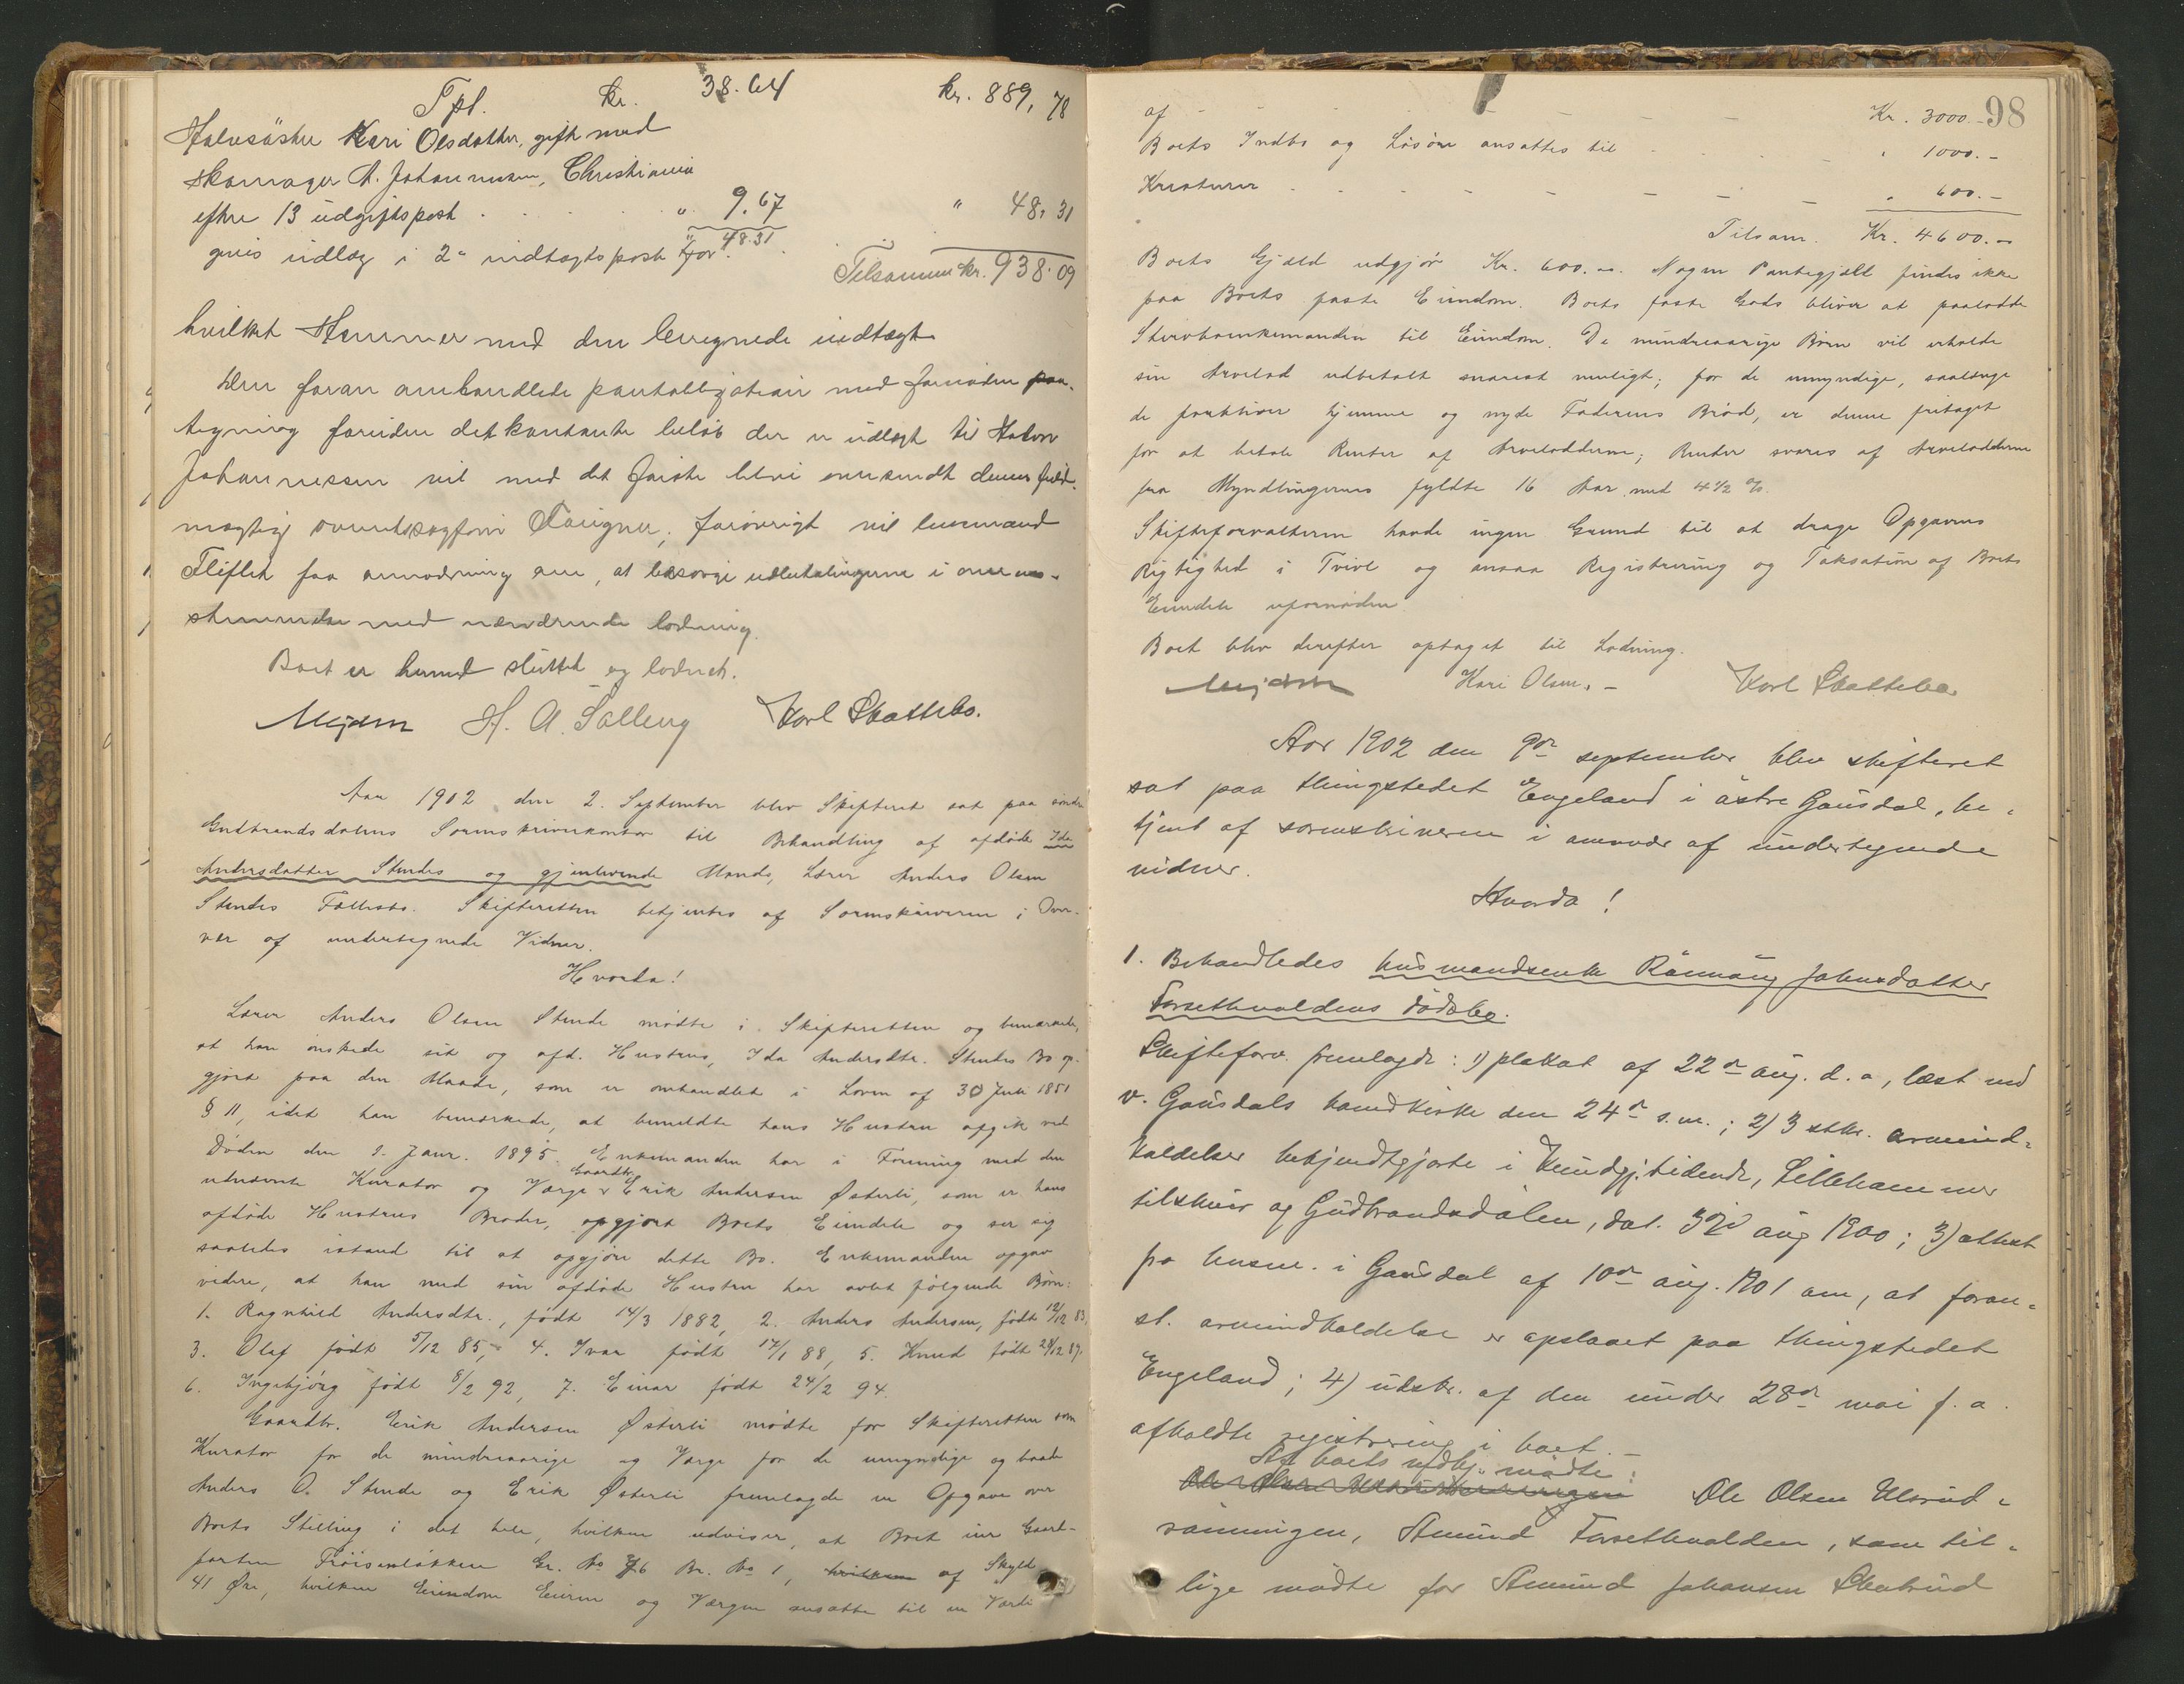 Tpl. kr. 38.64 kr. 889,78
Halvsøster Kari Olsdatter, gift med
skomager A. Johannesen, Christiania
efter 13 udgiftspost " 9.67 " 48,31
givis udlæg i 2den indtægtspost for " 48.31
Tilsammen kr. 938.09
hvilket stemmer med den beregnede indtægt.
Den foran omhandlede pantobligation med fornøden paa-
tegning foruden det kontante beløb der er udlagt til Halvor
Johannessen vil med det første blive oversendt dennes fuld-
mægtig overretssagfører ; forøvrigt vil lensmand
Fliflet faa anmodning om, at besørge udbetalingerne i overens-
stemmelse med nærværende lodning.
Boet er hermed sluttet og loddet.
Mejdell H. A. Salling Karl Skattebo.
Aar 1902 den 2. September blev Skifteret sat paa søndre
Gudbrandsdalens Sorenskriverkontor til Behandling af afdøde Ida
Andersdatter Stendes og gjenlevende Mands, Lærer Anders Olsen
Stendes Fællesbo. Skifteretten betjentes af Sorenskriveren i Over-
vær af undertegnede Vidner.
Hvorda!
Lærer Anders Olsen Stende mødte i Skifteretten og bemærkede,
at han ønskede sit og afd. Hustrus, Ida Andersdtr. Stendes Bo op-
gjort paa den Maade, som er omhandlet i Loven af 30 Juli 1851
§ 11, idet han bemærkede, at bemeldte hans Hustru afgik ved
Døden den 9. Janr. 1895. Enkemanden har i Forening med den
udnævnte Kurator og Værge Gaardbr. Erik Andersen Østerli, som er hans
afdøde Hustrus Broder, opgjort Boets Eiendele og ser sig
saaledes istand til at opgjøre dette Bo. Enkemanden opgav
videre, at han med sin afdøde Hustru har avlet følgende Børn:
1. Ragnhild Andersdtr., født 14/3 1882, 2. Anders Andersen, født 12/12 83,
3. Olaf født 5/12 85, 4. Ivar født 17/1 88, 5. Knud født 28/12 89.
6. Ingebjørg født 8/2 92, 7. Einar født 24/2 94.
Gaardbr. Erik Andersen Østerli mødte for Skifteretten som
Kurator for de mindreaarige og Værge for de umyndige og baade
Anders O. Stende og Erik Østerli fremlagde en Opgave over
Boets Stilling i det hele, hvilken udviser, at Boet eier Gaard-
parten Frøisenløkken Gr. No 76 Br. No 1, hvilken af Skyld
41 Øre, hvilken Eiendom Eieren og Værgen ansatte til en Værdi
98
af - - - - - Kr. 3000.-
Boets Indbo og Løsøre ansattes til - - - " 1000.-
Kreaturer - - - - - - " 600.-
Tilsam. Kr. 4600.-
Boets Gjæld udgjør Kr. 600.-. Nogen Pantegjæld findes ikke
paa Boets faste Eiendom. Boets faste Gods bliver at paalodde
Stervboenkemanden til Eiendom. De mindreaarige Børn vil erholde
sin Arvelod udbetalt snarest muligt; for de umyndige, saalænge
de forbliver hjemme og nyde Faderens Brød, er denne fritaget
for at betale Renter af Arvelodderne; Renter svares af Arvelodderne
fra Myndlingernes fyldte 16 Aar med 4 1/2 %.
Skifteforvalteren havde ingen Grund til at drage Opgavens
Rigtighed i Tvivl og ansaa Registrering og Taksation af Boets
Eiendele ufornøden.
Boet blev derefter optaget til Lodning.
Mejdell Kari Olsen.- Karl Skattebo
Aar 1902 den 9de september blev skifteret
sat paa thingstedet Engeland i østre Gausdal, be-
tjent af sorenskriveren i overvær af undertegnede
vidner.
Hvorda!
1. Behandledes husmandsenke Rønnaug Johnsdatter
Forsethvoldens dødsbo.
Skifteforv. fremlagde: 1) plakat af 22de aug. d.a, læst ved
v. Gausdals hovedkirke den 24de s.m.; 2) 3 stkr. arveind-
kaldelser bekjendtgjorte i Kundgj.tidende, Lillehammer
tilskuer og Gudbrandsdølen, dat. aug 1900; 3) attest
fra lensm. i Gausdal af 10de aug. 1901 om, at foran-
st. arveindkaldelse er opslaaet paa thingstedet
Engeland; 4) udskr. af den under 28de mai f.a.
afholdte registrering i boet.-
Af boets vedk. mødte:
Ole Olsen Ulsrud-
rønningen, Amund Forsethvolden, som til-
lige mødte for Amund Johansen Skabrud